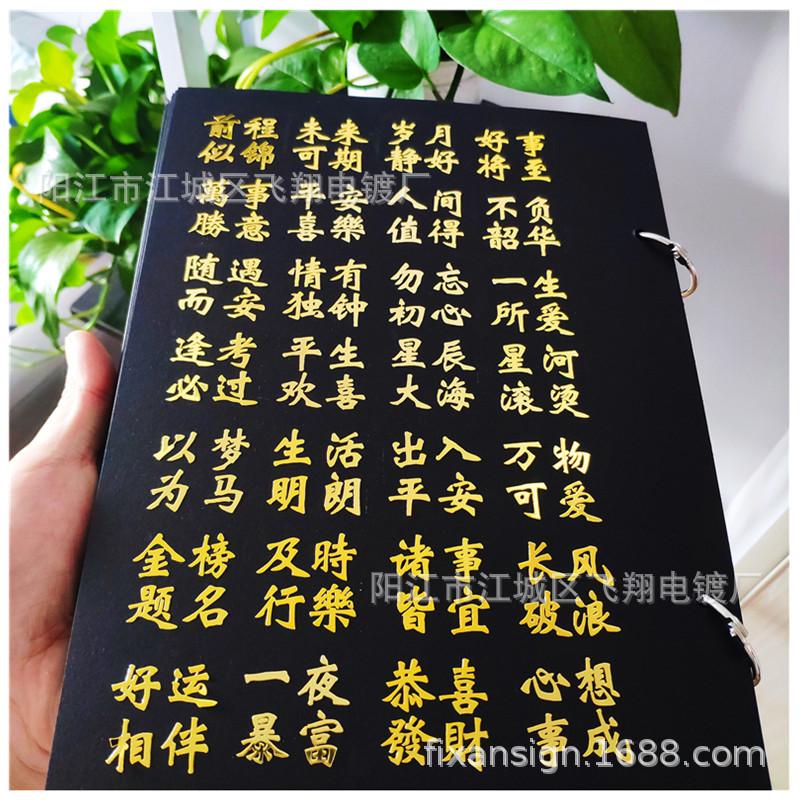 前程 未来 岁月 好事
似錦 可期 静好 将至
阳江市江城区飞翔电镀厂
萬事 平安 人间 不负
勝意 喜樂 值得 韶华
随遇 情有 勿忘 一生
而安 独钟 初心 所爱
逢考 平生 星辰 星河
必过 欢喜 大海 滚烫
以梦 生活 出入 万物
为马 明朗 平安 可爱
金榜 及時 诸事 长风
阳江市江城区飞翔电镀厂
题名 行樂 皆宜 破浪
好运 一夜 恭喜 心想
相伴 暴富 發財 事成
fixansign.1688.com